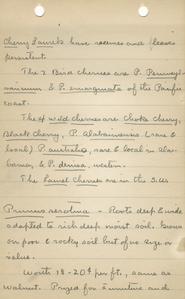 Cherry Laurels have racemes and leaves
persistent.
The 2 Bird cherries are P. Pennsyl-
vanicum & P. emarginata of the Pacific
coast.
The 4 wild cherries are choke cherry,
Black cherry, P. Alabamensis (rare &
local) P. australis, rare & local in Ala-
bama, & P. demisa, western.
The Laurel cherries are in the S.US
Prunus serotina - Roots deep & wide
adapted to rich deep moist soil. Grows
on poor & rocky soil but of no size or
value.
Worth 18-20¢ per ft., same as
walnut. Prized for furniture and